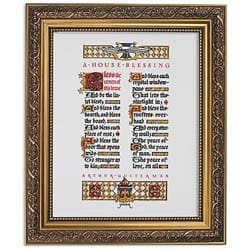 A·HOUSE·BLESSING
Bless
the corners
of this house
And be the lin-
tel blest
And bless the
hearth, and bless
the board,
And bless each
place of rest
And bless the
door that opens
wide
To stranger as
to kin
And bless each
crystal window
pane
That lets the
starlight in
And bless the
overhead
And every
sturdy wall.
The peace of man,
The peace of God,
The peace of
love, on all.
ARTHUR·GUITERMAN